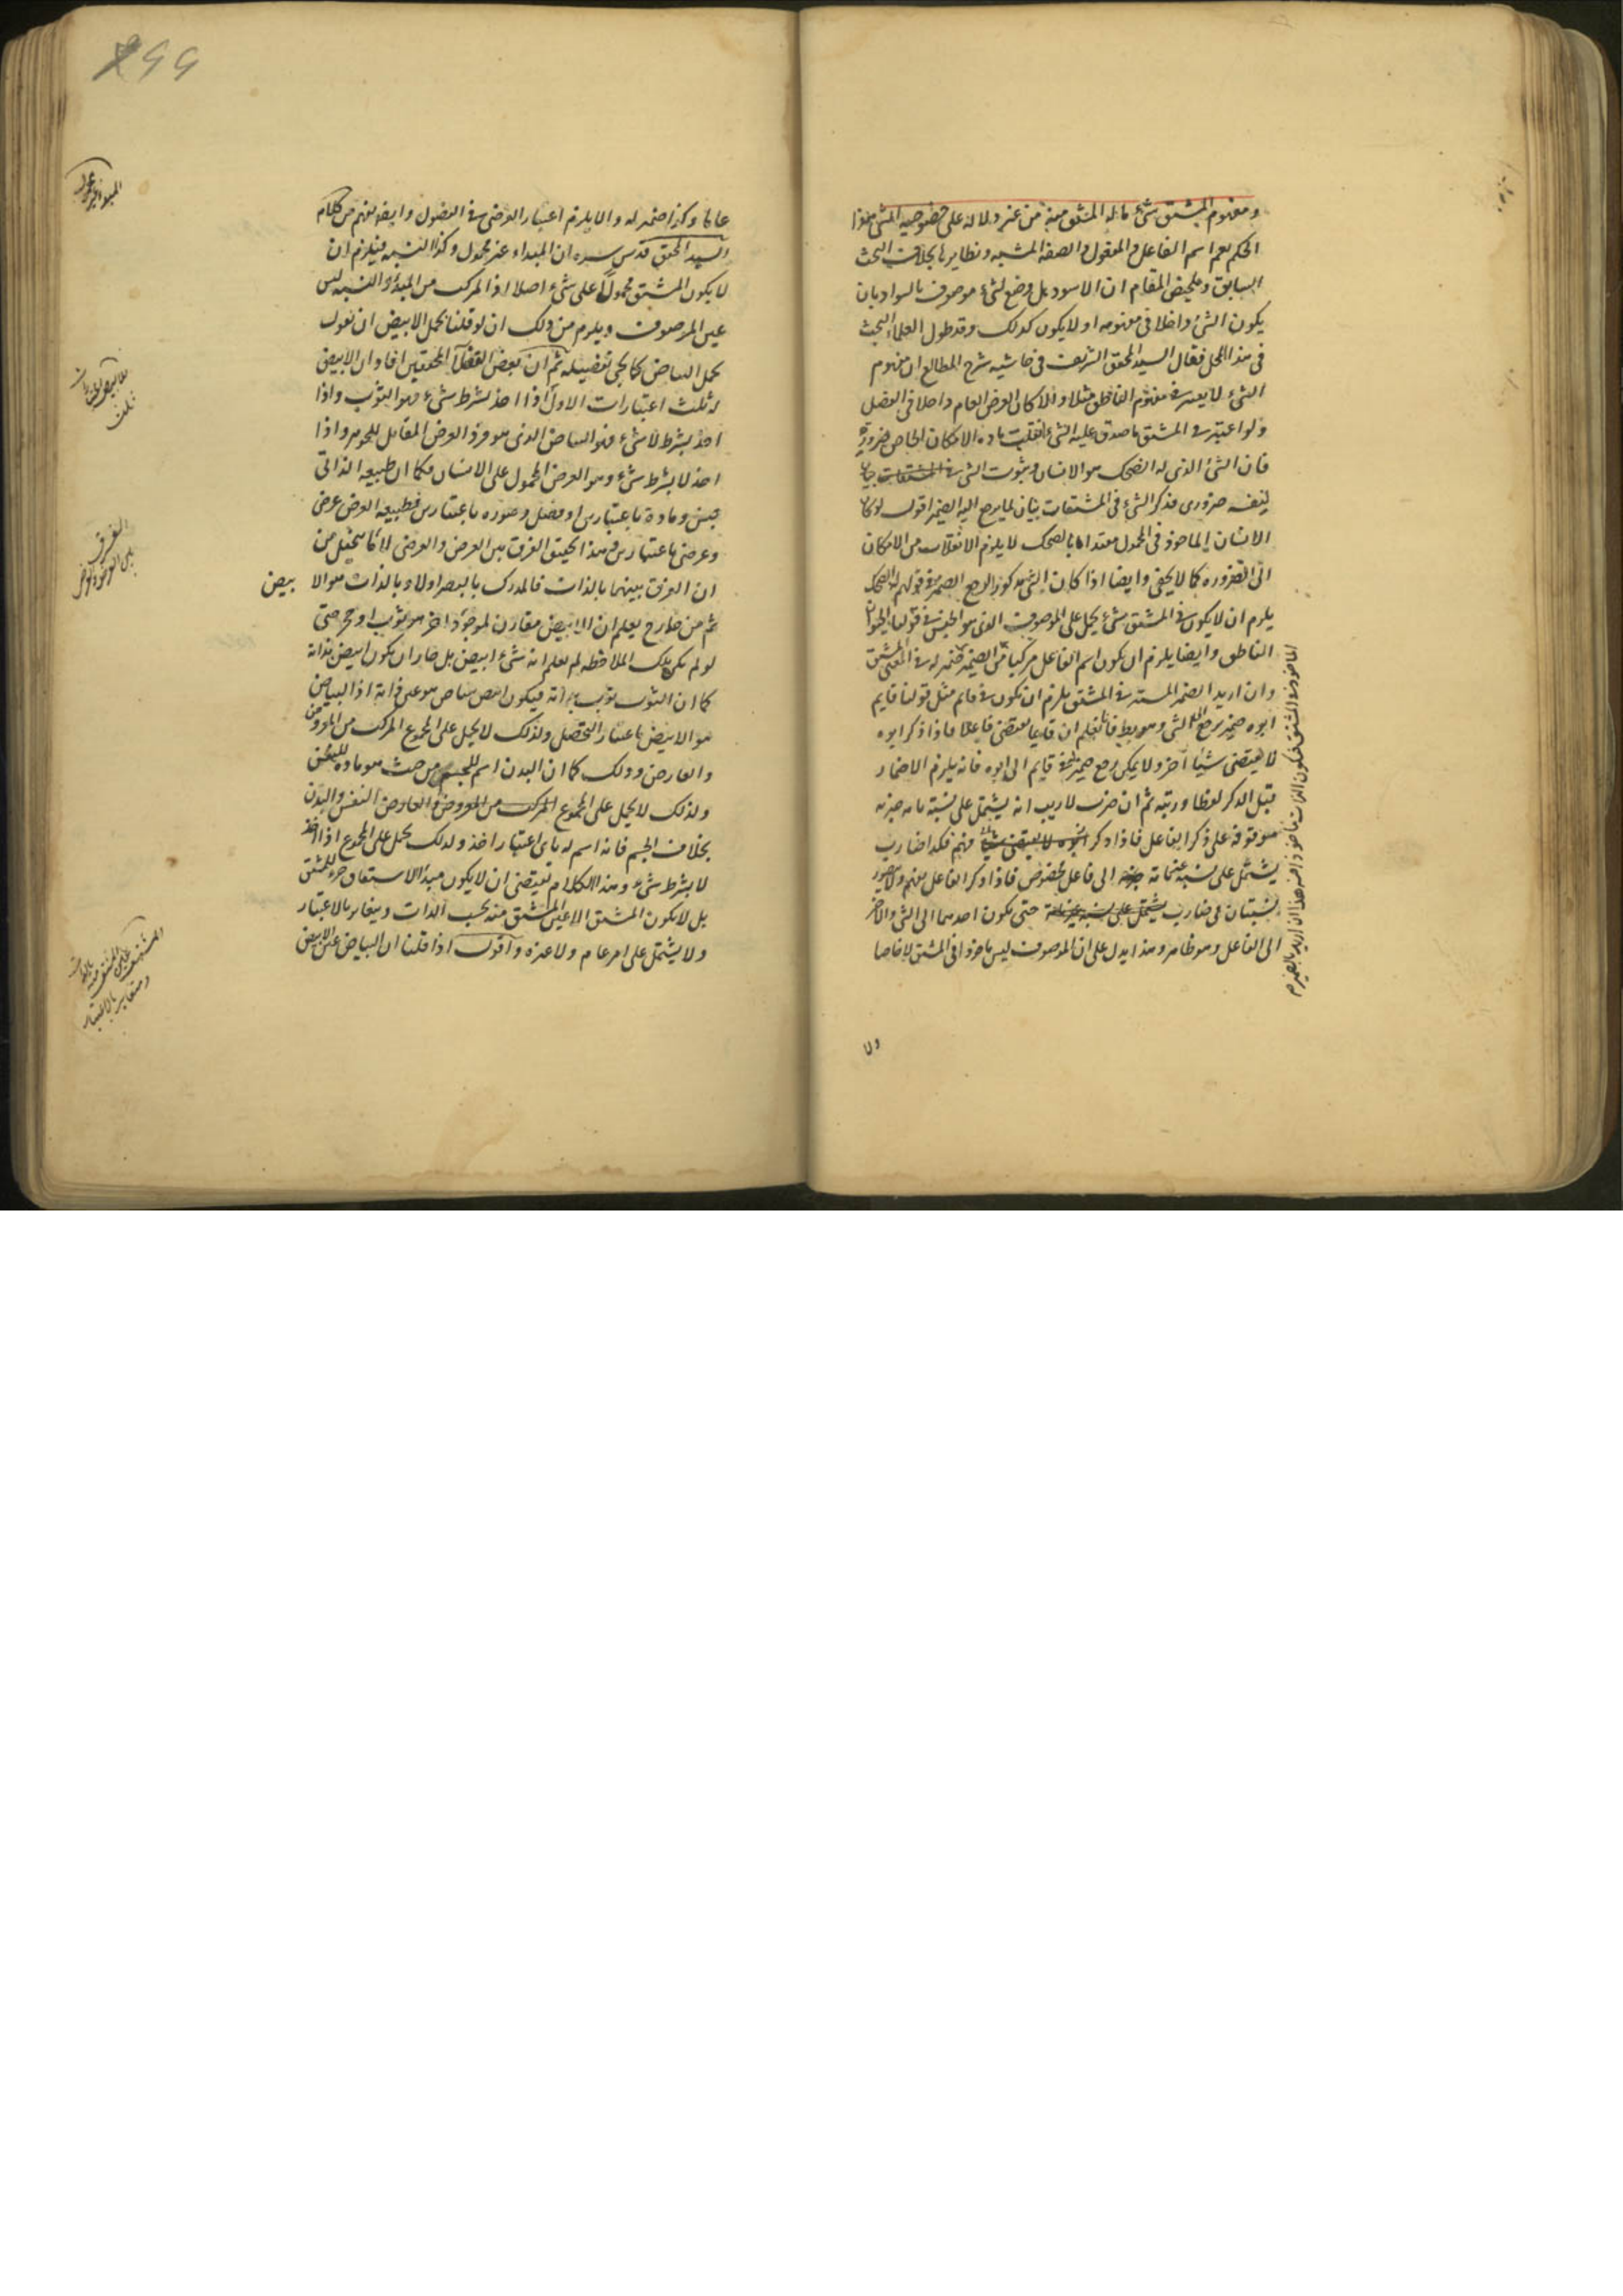 ومفهوم المشتق شئ ما له المشتق منه من غير دلالة على خصوصية الشئ وهذا
الحكم يعم اسم الفاعل والمفعول والصفة المشبهة ونظايرها بخلاف البحث
السابق وتلخيص المقام ان الاسود هل وضع لشئ موصوف بالسواد بان
يكون الشئ داخلا فى مفهومه او لا يكون كذلك وقد طول العلماء البحث
فى هذا المحل فقال السيد المحقق الشريف فى حاشيه شرح المطالع ان مفهوم
الشئ لا يعتبر فى مفهوم الناطق مثلا والا لكان العرض العام داخلا فى الفصل
ولو اعتبر فى المشتق ما صدق عليه الشئ انقلبت مادة الامكان الخاص ضرورة
فان الشئ الذى له الضحك هو الانسان وثبوت الشئ
لنفسه ضرورى فذكر الشئ فى المشتقات بيان لما يرجع اليه الضمير اقول لو كان
الانسان الماخوذ فى المحمول مقيدا بالضحك لا يلزم الانقلاب من الامكان
الى الضرورة كما لا يخفى وايضا اذا كان الشئ مذكورا لرجع الضمير فى قولهم له الضحك
يلزم ان لا يكون فى المشتق شئ يحمل على الموصوف الذى هو الجنس فى قولنا الحيوان
الناطق وايضا يلزم ان يكون اسم الفاعل مركبا من الضمير
وان اريد الضمير المستتر فى المشتق يلزم ان يكون فى قايم مثل قولنا قايم
ابوه ضمير يرجع الى الشئ وهو بط فانا نعلم ان قايما يقتضى فاعلا فاذا ذكر ابوه
لا يقتضى شيئا آخر ولا يمكن رجع ضمير قايم الى ابوه فانه يلزم الاضمار
قبل الذكر لفظا ورتبة ثم ان ضرب لا ريب انه يشتمل على نسبة تامة خبرية
موقوفة على ذكر الفاعل فاذا ذكر فهم فكذا ضارب
يشتمل على نسبة غير تامة الى فاعل مخصوص فاذا ذكر الفاعل يفهم ولا يتصور
نسبتان فى ضارب حتى يكون احدهما الى الشئ والآخر
الى الفاعل وهو ظاهر وهذا يدل على ان الموصوف ليس ماخوذا فى المشتق لا خاصا
ولا
عاما وكذا ضمير له والا يلزم اعتبار العرضى فى الفصول وايضا يفهم من كلام
السيد المحقق قدس سره ان المبداء غير محمول وكذا النسبة فيلزم ان
لا يكون المشتق محمولا على شئ اصلا اذ المركب من المبدأ والنسبة ليس
عين الموصوف ويلزم من ذلك ان لو قلنا بحمل الابيض ان نقول
بحمل البياض كما يجئ تفصيله ثم ان بعض الفضلاء المحققين افاد ان الابيض
له ثلث اعتبارات الاول اذا اخذ بشرط شئ فهو الثوب واذا
اخذ بشرط لا شئ فهو البياض الذى هو فرد العرض المقابل للجوهر واذا
اخذ لا بشرط شئ وهو العرض المحمول على الانسان فكما ان طبيعة الذاتى
جنس ومادة باعتبارين او فصل وصورة باعتبارين فطبيعة العرض عرض
وعرضى باعتبارين فهذا تحقيق الفرق بين العرض والعرضى لا كما يتخيل من
ان الفرق بينهما بالذات فالمدرك بالبصر اولا وبالذات هو الابيض
ثم من خارج يعلم ان الابيض مقارن لموجود آخر هو ثوب او حجر حتى
لو لم تكن تلك الملاحظة لم نعلم انه شئ ابيض بل جاز ان يكون ابيض بذاته
كما ان الثوب ثوب بذاته فيكون ابيض ببياض هو عين ذاته اذ البياض
هو الابيض باعتبار التحصل ولذلك لا يحمل على المجموع المركب من المعروض
والعارض وذلك كما ان البدن اسم للجسم من حيث هو مادة للنفس
ولذلك لا يحمل على المجموع المركب من النفس والبدن
بخلاف الجسم فانه اسم له باى اعتبار اخذ ولذلك يحمل على المجموع اذا اخذ
لا بشرط شئ وهذا الكلام يقتضى ان لا يكون مبدأ الاشتقاق جزء للمشتق
بل لا يكون المشتق الا عين المشتق منه بحسب الذات ويغاير بالاعتبار
ولا يشتمل على امر عام ولا غيره واقول اذا قلنا ان البياض عين الابيض
الفرق
بين العرض والعرضى